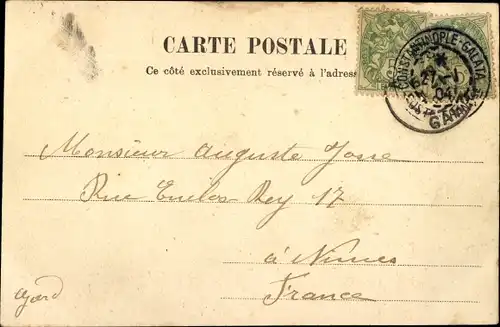 CARTE POSTALE
Ce côté exclusivement réservé à l'adresse
CONSTANTINOPLE-GALATA
27-1
04
Monsieur Auguste Josse
Rue Emiles Rey 17
à Nimes
Gard
France